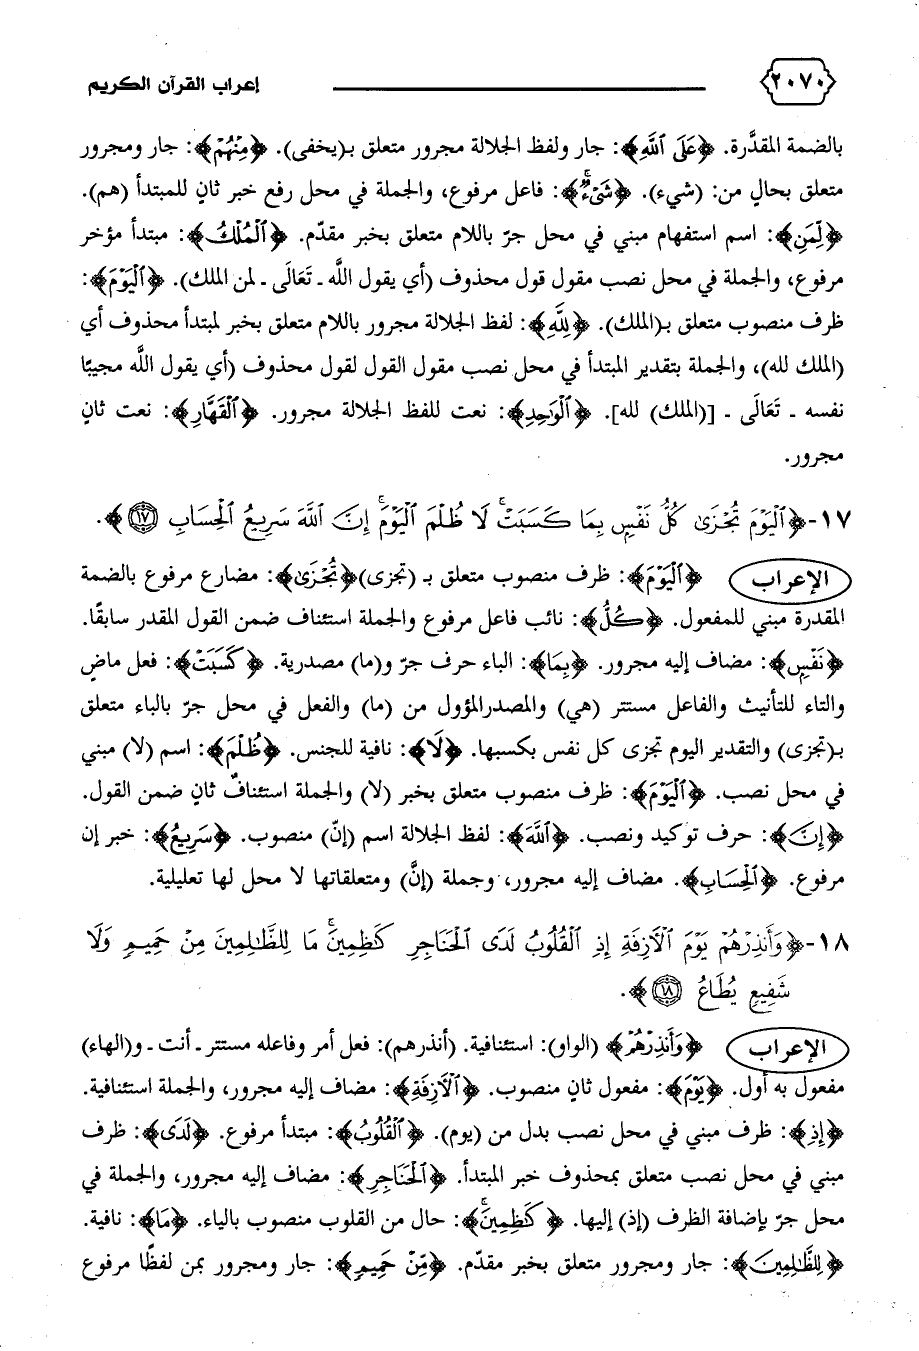 ٢٠٧٠ إعراب القرآن الكريم
بالضمة المقدَّرة. ﴿عَلَى ٱللَّهِ﴾: جار ولفظ الجلالة مجرور متعلق بـ(يخفى). ﴿مِنْهُمْ﴾: جار ومجرور
متعلق بحالٍ من: (شيء). ﴿شَىْءٌۚ﴾: فاعل مرفوع، والجملة في محل رفع خبر ثانٍ للمبتدأ (هم).
﴿لِّمَنِ﴾: اسم استفهام مبني في محل جرّ باللام متعلق بخبر مقدّم. ﴿ٱلْمُلْكُ﴾: مبتدأ مؤخر
مرفوع، والجملة في محل نصب مقول قول محذوف (أي يقول اللَّه ـ تَعَالَى ـ لمن الملك). ﴿ٱلْيَوْمَ﴾:
ظرف منصوب متعلق بـ(الملك). ﴿لِلَّهِ﴾: لفظ الجلالة مجرور باللام متعلق بخبر لمبتدأ محذوف أي
(الملك لله)، والجملة بتقدير المبتدأ في محل نصب مقول القول لقول محذوف (أي يقول اللَّه مجيبًا
نفسه ـ تَعَالَى ـ [(الملك) لله]. ﴿ٱلْوَٰحِدِ﴾: نعت للفظ الجلالة مجرور. ﴿ٱلْقَهَّارِ﴾: نعت ثانٍ
مجرور.
١٧-﴿ٱلْيَوْمَ تُجْزَىٰ كُلُّ نَفْسٍۭ بِمَا كَسَبَتْۚ لَا ظُلْمَ ٱلْيَوْمَۚ إِنَّ ٱللَّهَ سَرِيعُ ٱلْحِسَابِ ١٧﴾.
الإعراب ﴿ٱلْيَوْمَ﴾: ظرف منصوب متعلق بـ (تجزى)﴿تُجْزَىٰ﴾: مضارع مرفوع بالضمة
المقدرة مبني للمفعول. ﴿كُلُّ﴾: نائب فاعل مرفوع والجملة استئناف ضمن القول المقدر سابقًا.
﴿نَفْسٍۭ﴾: مضاف إليه مجرور. ﴿بِمَا﴾: الباء حرف جرّ و(ما) مصدرية. ﴿كَسَبَتْ﴾: فعل ماضٍ
والتاء للتأنيث والفاعل مستتر (هي) والمصدرالمؤول من (ما) والفعل في محل جرّ بالباء متعلق
بـ(تجزى) والتقدير اليوم تجزى كل نفس بكسبها. ﴿لَا﴾: نافية للجنس. ﴿ظُلْمَ﴾: اسم (لا) مبني
في محل نصب. ﴿ٱلْيَوْمَ﴾: ظرف منصوب متعلق بخبر (لا) والجملة استئنافٌ ثانٍ ضمن القول.
﴿إِنَّ﴾: حرف توكيد ونصب. ﴿ٱللَّهَ﴾: لفظ الجلالة اسم (إنّ) منصوب. ﴿سَرِيعُ﴾: خبر إن
مرفوع. ﴿ٱلْحِسَابِ﴾. مضاف إليه مجرور، وجملة (إنَّ) ومتعلقاتها لا محل لها تعليلية.
١٨-﴿وَأَنذِرْهُمْ يَوْمَ ٱلْـَٔازِفَةِ إِذِ ٱلْقُلُوبُ لَدَى ٱلْحَنَاجِرِ كَٰظِمِينَۚ مَا لِلظَّٰلِمِينَ مِنْ حَمِيمٍ وَلَا
شَفِيعٍ يُطَاعُ ١٨﴾.
الإعراب ﴿وَأَنذِرْهُمْ﴾ (الواو): استئنافية. (أنذرهم): فعل أمر وفاعله مستتر ـ أنت ـ و(الهاء)
مفعول به أول. ﴿يَوْمَ﴾: مفعول ثان منصوب. ﴿ٱلْـَٔازِفَةِ﴾: مضاف إليه مجرور، والجملة استئنافية.
﴿إِذِ﴾: ظرف مبني في محل نصب بدل من (يوم). ﴿ٱلْقُلُوبُ﴾: مبتدأ مرفوع. ﴿لَدَى﴾: ظرف
مبني في محل نصب متعلق بمحذوف خبر المبتدأ. ﴿ٱلْحَنَاجِرِ﴾: مضاف إليه مجرور، والجملة في
محل جرّ بإضافة الظرف (إذ) إليها. ﴿كَٰظِمِينَۚ﴾: حال من القلوب منصوب بالياء. ﴿مَا﴾: نافية.
﴿لِلظَّٰلِمِينَ﴾: جار ومجرور متعلق بخبر مقدّم. ﴿مِّنْ حَمِيمٍ﴾: جار ومجرور بمن لفظًا مرفوع